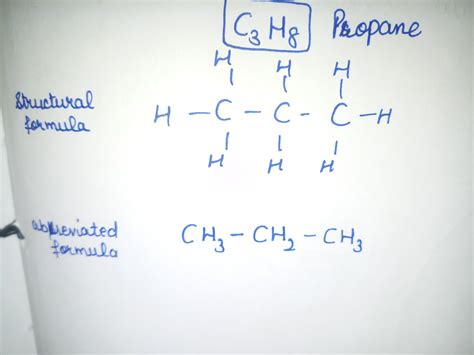 C3H8 Propane
H H H
Structural formula
H - C - C - C - H
H H H
abbreviated formula
CH3 - CH2 - CH3